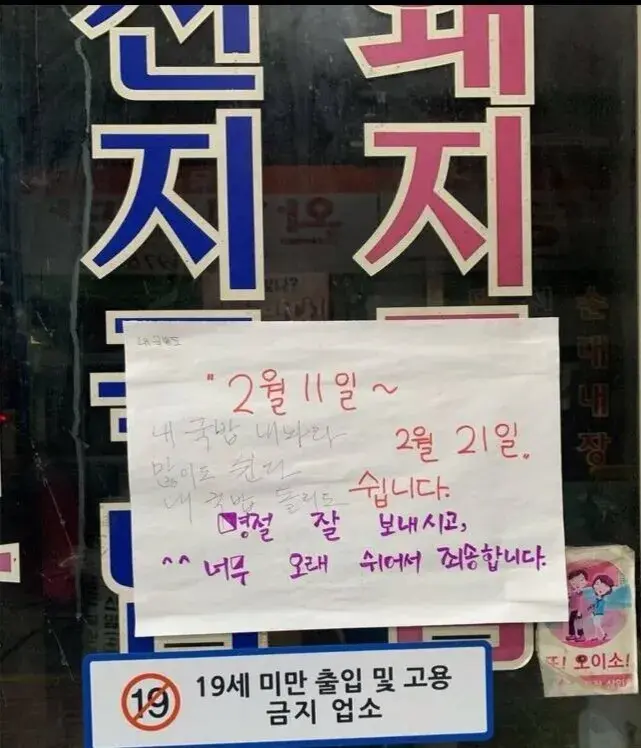 돼지
지
" 2월 11일 ~
2월 21일.
쉽니다.
내 국밥 내놔라
많이도 쉰다
내 국밥 돌리도
명절 잘 보내시고,
^^ 너무 오래 쉬어서 죄송합니다.
순대내장
또! 오이소!
19 19세 미만 출입 및 고용
금지 업소